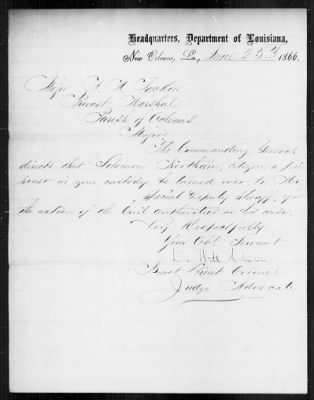 Headquarters, Department of Louisiana,
New Orleans, La., June 25th 1866.
Provost Marshal
Parish of Orleans
Major
The Commanding General
directs that Solomon citizen a pri
soner in your custody be turned over to
Special Deputy Sheriff, for
the action of the Civil authorities in his case.
Very Respectfully
Your Obt Servant
Bvet Lieut Colonel
Judge Advocate